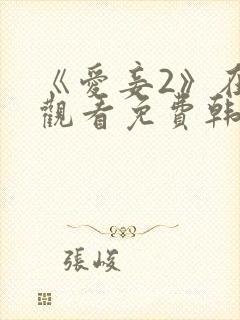 《愛妾2》在
觀看免費韓
張峻